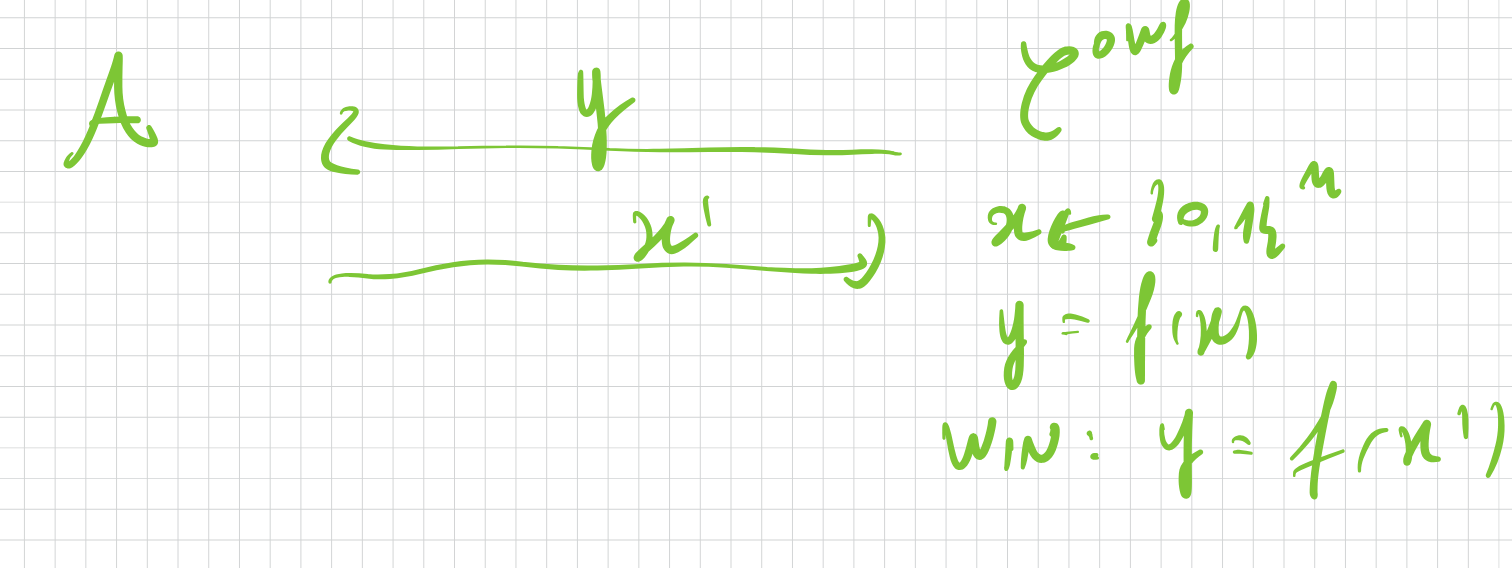 A y C^owf
x' x ← {0,1}^n
y = f(x)
WIN: y = f(x')